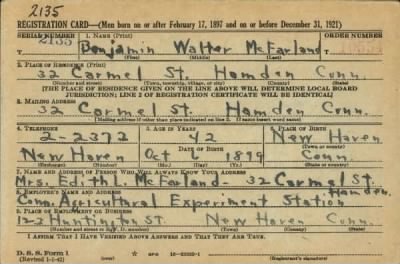 2135
REGISTRATION CARD—(Men born on or after February 17, 1897 and on or before December 31, 1921)
SERIAL NUMBER 1. NAME (Print) ORDER NUMBER
2135 Benjamin Walter McFarland
(First) (Middle) (Last)
2. PLACE OF RESIDENCE (Print)
32 Carmel St. Hamden Conn.
(Number and street) (Town, township, village, or city) (County) (State)
[THE PLACE OF RESIDENCE GIVEN ON THE LINE ABOVE WILL DETERMINE LOCAL BOARD
JURISDICTION; LINE 2 OF REGISTRATION CERTIFICATE WILL BE IDENTICAL]
3. MAILING ADDRESS
32 Carmel St. Hamden Conn.
[Mailing address if other than place indicated on line 2. If same insert word same]
4. TELEPHONE 5. AGE IN YEARS 6. PLACE OF BIRTH
2-2372 42 New Haven
DATE OF BIRTH (Town or county)
New Haven Oct 6 1899 Conn.
(Exchange) (Number) (Mo.) (Day) (Yr.) (State or country)
7. NAME AND ADDRESS OF PERSON WHO WILL ALWAYS KNOW YOUR ADDRESS
Mrs. Edith L. McFarland - 32 Carmel St.
8. EMPLOYER'S NAME AND ADDRESS Hamden.
Conn. Agricultural Experiment Station
9. PLACE OF EMPLOYMENT OR BUSINESS
123 Huntington St. New Haven Conn.
(Number and street or R. F. D. number) (Town) (County) (State)
I AFFIRM THAT I HAVE VERIFIED ABOVE ANSWERS AND THAT THEY ARE TRUE.
D. S. S. Form 1
(Revised 1-1-42) (over)
(Registrant's signature)